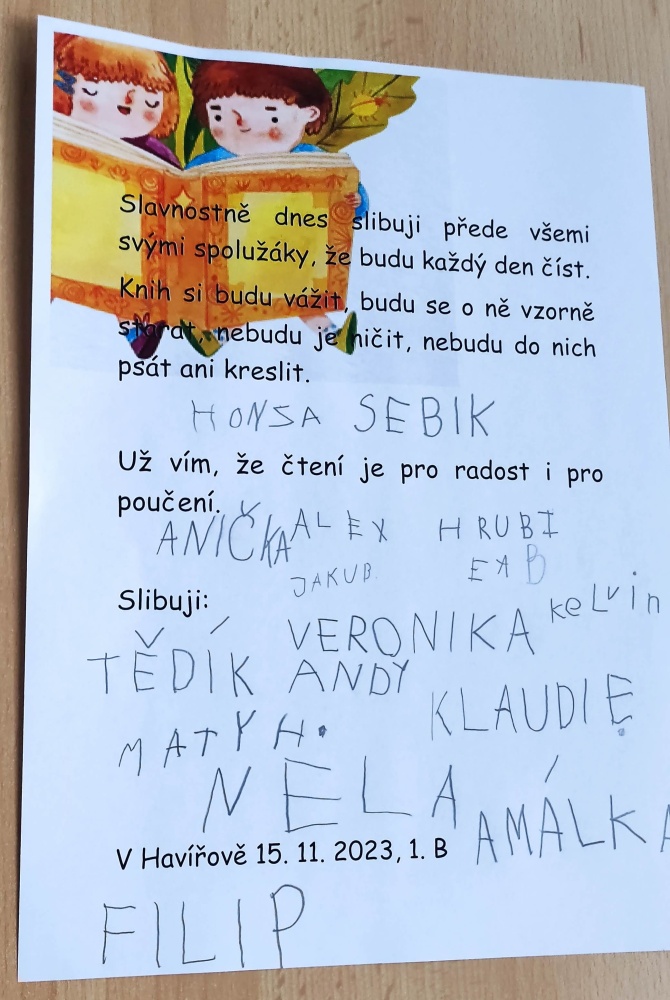 Slavnostně dnes slibuji přede všemi
svými spolužáky, že budu každý den číst.
Knih si budu vážit, budu se o ně vzorně
starat, nebudu je ničit, nebudu do nich
psát ani kreslit.
HONSA SEBIK
Už vím, že čtení je pro radost i pro
poučení.
ANIČKA ALEX HRUBI
JAKUB
Slibuji:
VERONIKA keLvin
TĚDÍK ANDY
KLAUDIE
MATYH.
NELA
AMÁLKA
V Havířově 15. 11. 2023, 1. B
FILIP